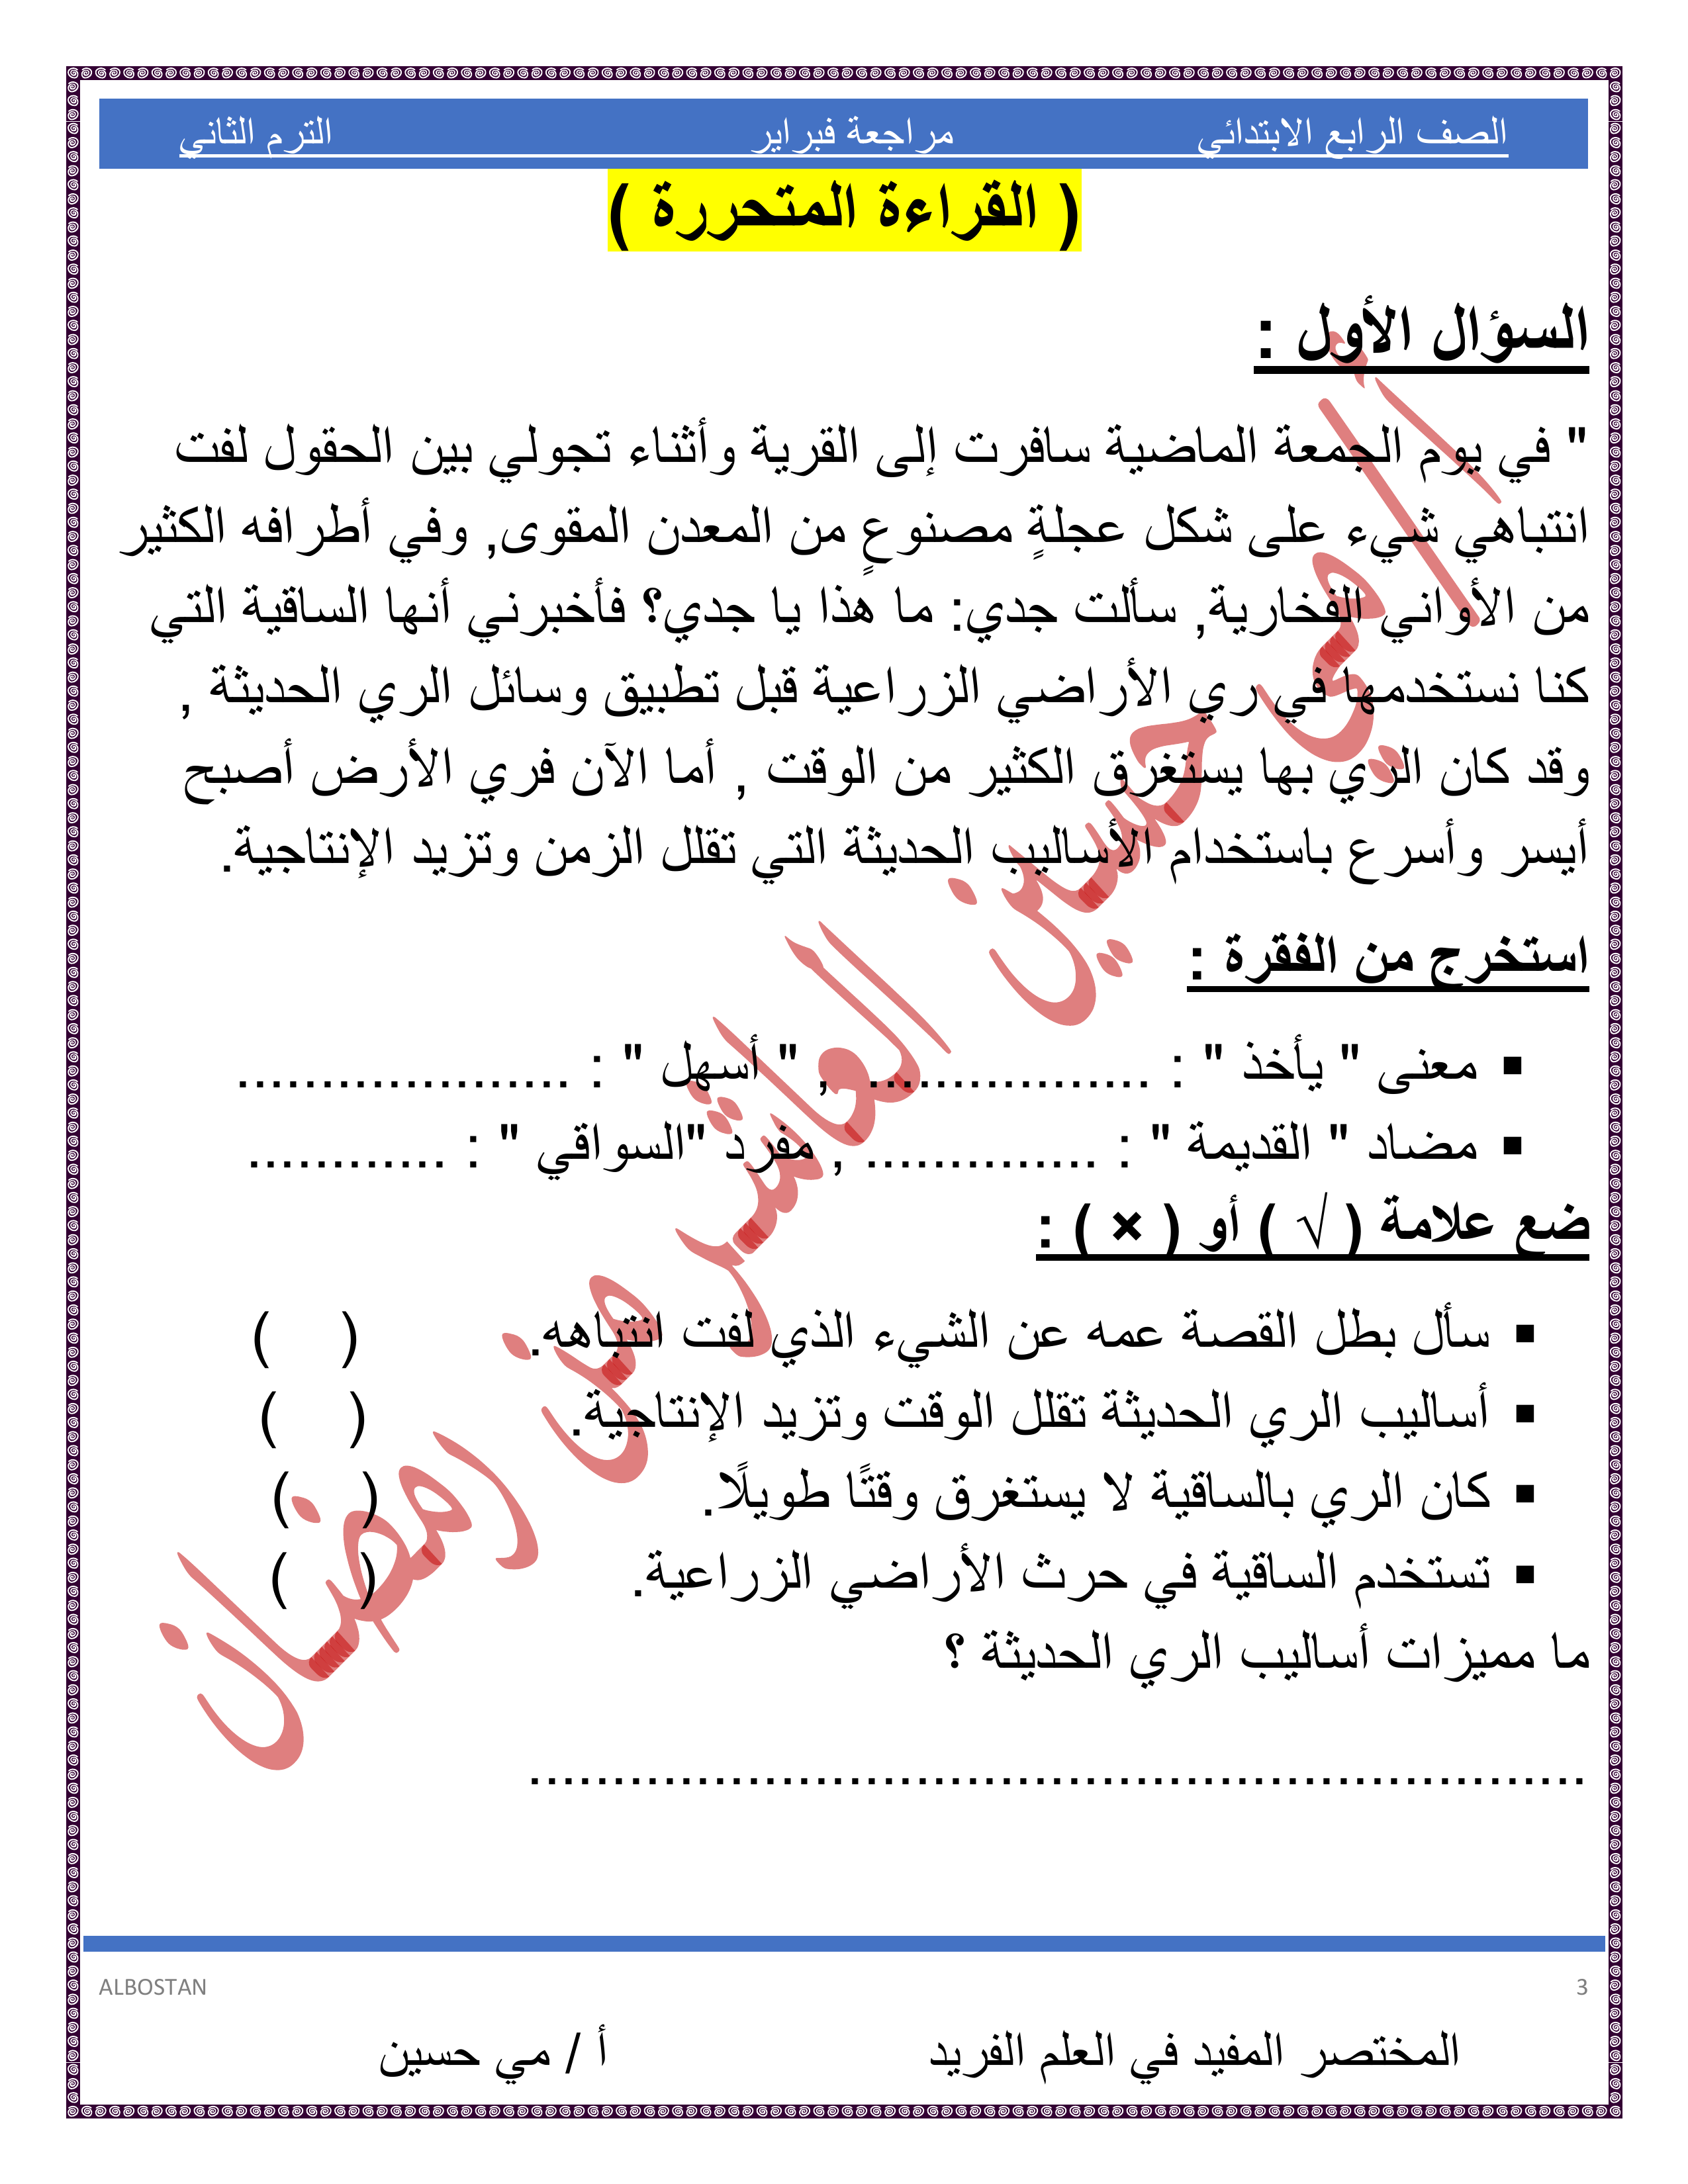 الصف الرابع الابتدائي مراجعة فبراير الترم الثاني
( القراءة المتحررة )
السؤال الأول :
" في يوم الجمعة الماضية سافرت إلى القرية وأثناء تجولي بين الحقول لفت
انتباهي شيء على شكل عجلةٍ مصنوعٍ من المعدن المقوى, وفي أطرافه الكثير
من الأواني الفخارية, سألت جدي: ما هذا يا جدي؟ فأخبرني أنها الساقية التي
كنا نستخدمها في ري الأراضي الزراعية قبل تطبيق وسائل الري الحديثة ,
وقد كان الري بها يستغرق الكثير من الوقت , أما الآن فري الأرض أصبح
أيسر وأسرع باستخدام الأساليب الحديثة التي تقلل الزمن وتزيد الإنتاجية.
استخرج من الفقرة :
▪ معنى " يأخذ " : ................. , " أسهل " : ....................
▪ مضاد " القديمة " : .............. , مفرد "السواقي " : ............
ضع علامة ( √ ) أو ( × ) :
▪ سأل بطل القصة عمه عن الشيء الذي لفت انتباهه. ( )
▪ أساليب الري الحديثة تقلل الوقت وتزيد الإنتاجية. ( )
▪ كان الري بالساقية لا يستغرق وقتًا طويلًا. ( )
▪ تستخدم الساقية في حرث الأراضي الزراعية. ( )
ما مميزات أساليب الري الحديثة ؟
................................................................
أ/مي حسين العاشر من رمضان
3 ALBOSTAN
المختصر المفيد في العلم الفريد أ / مي حسين